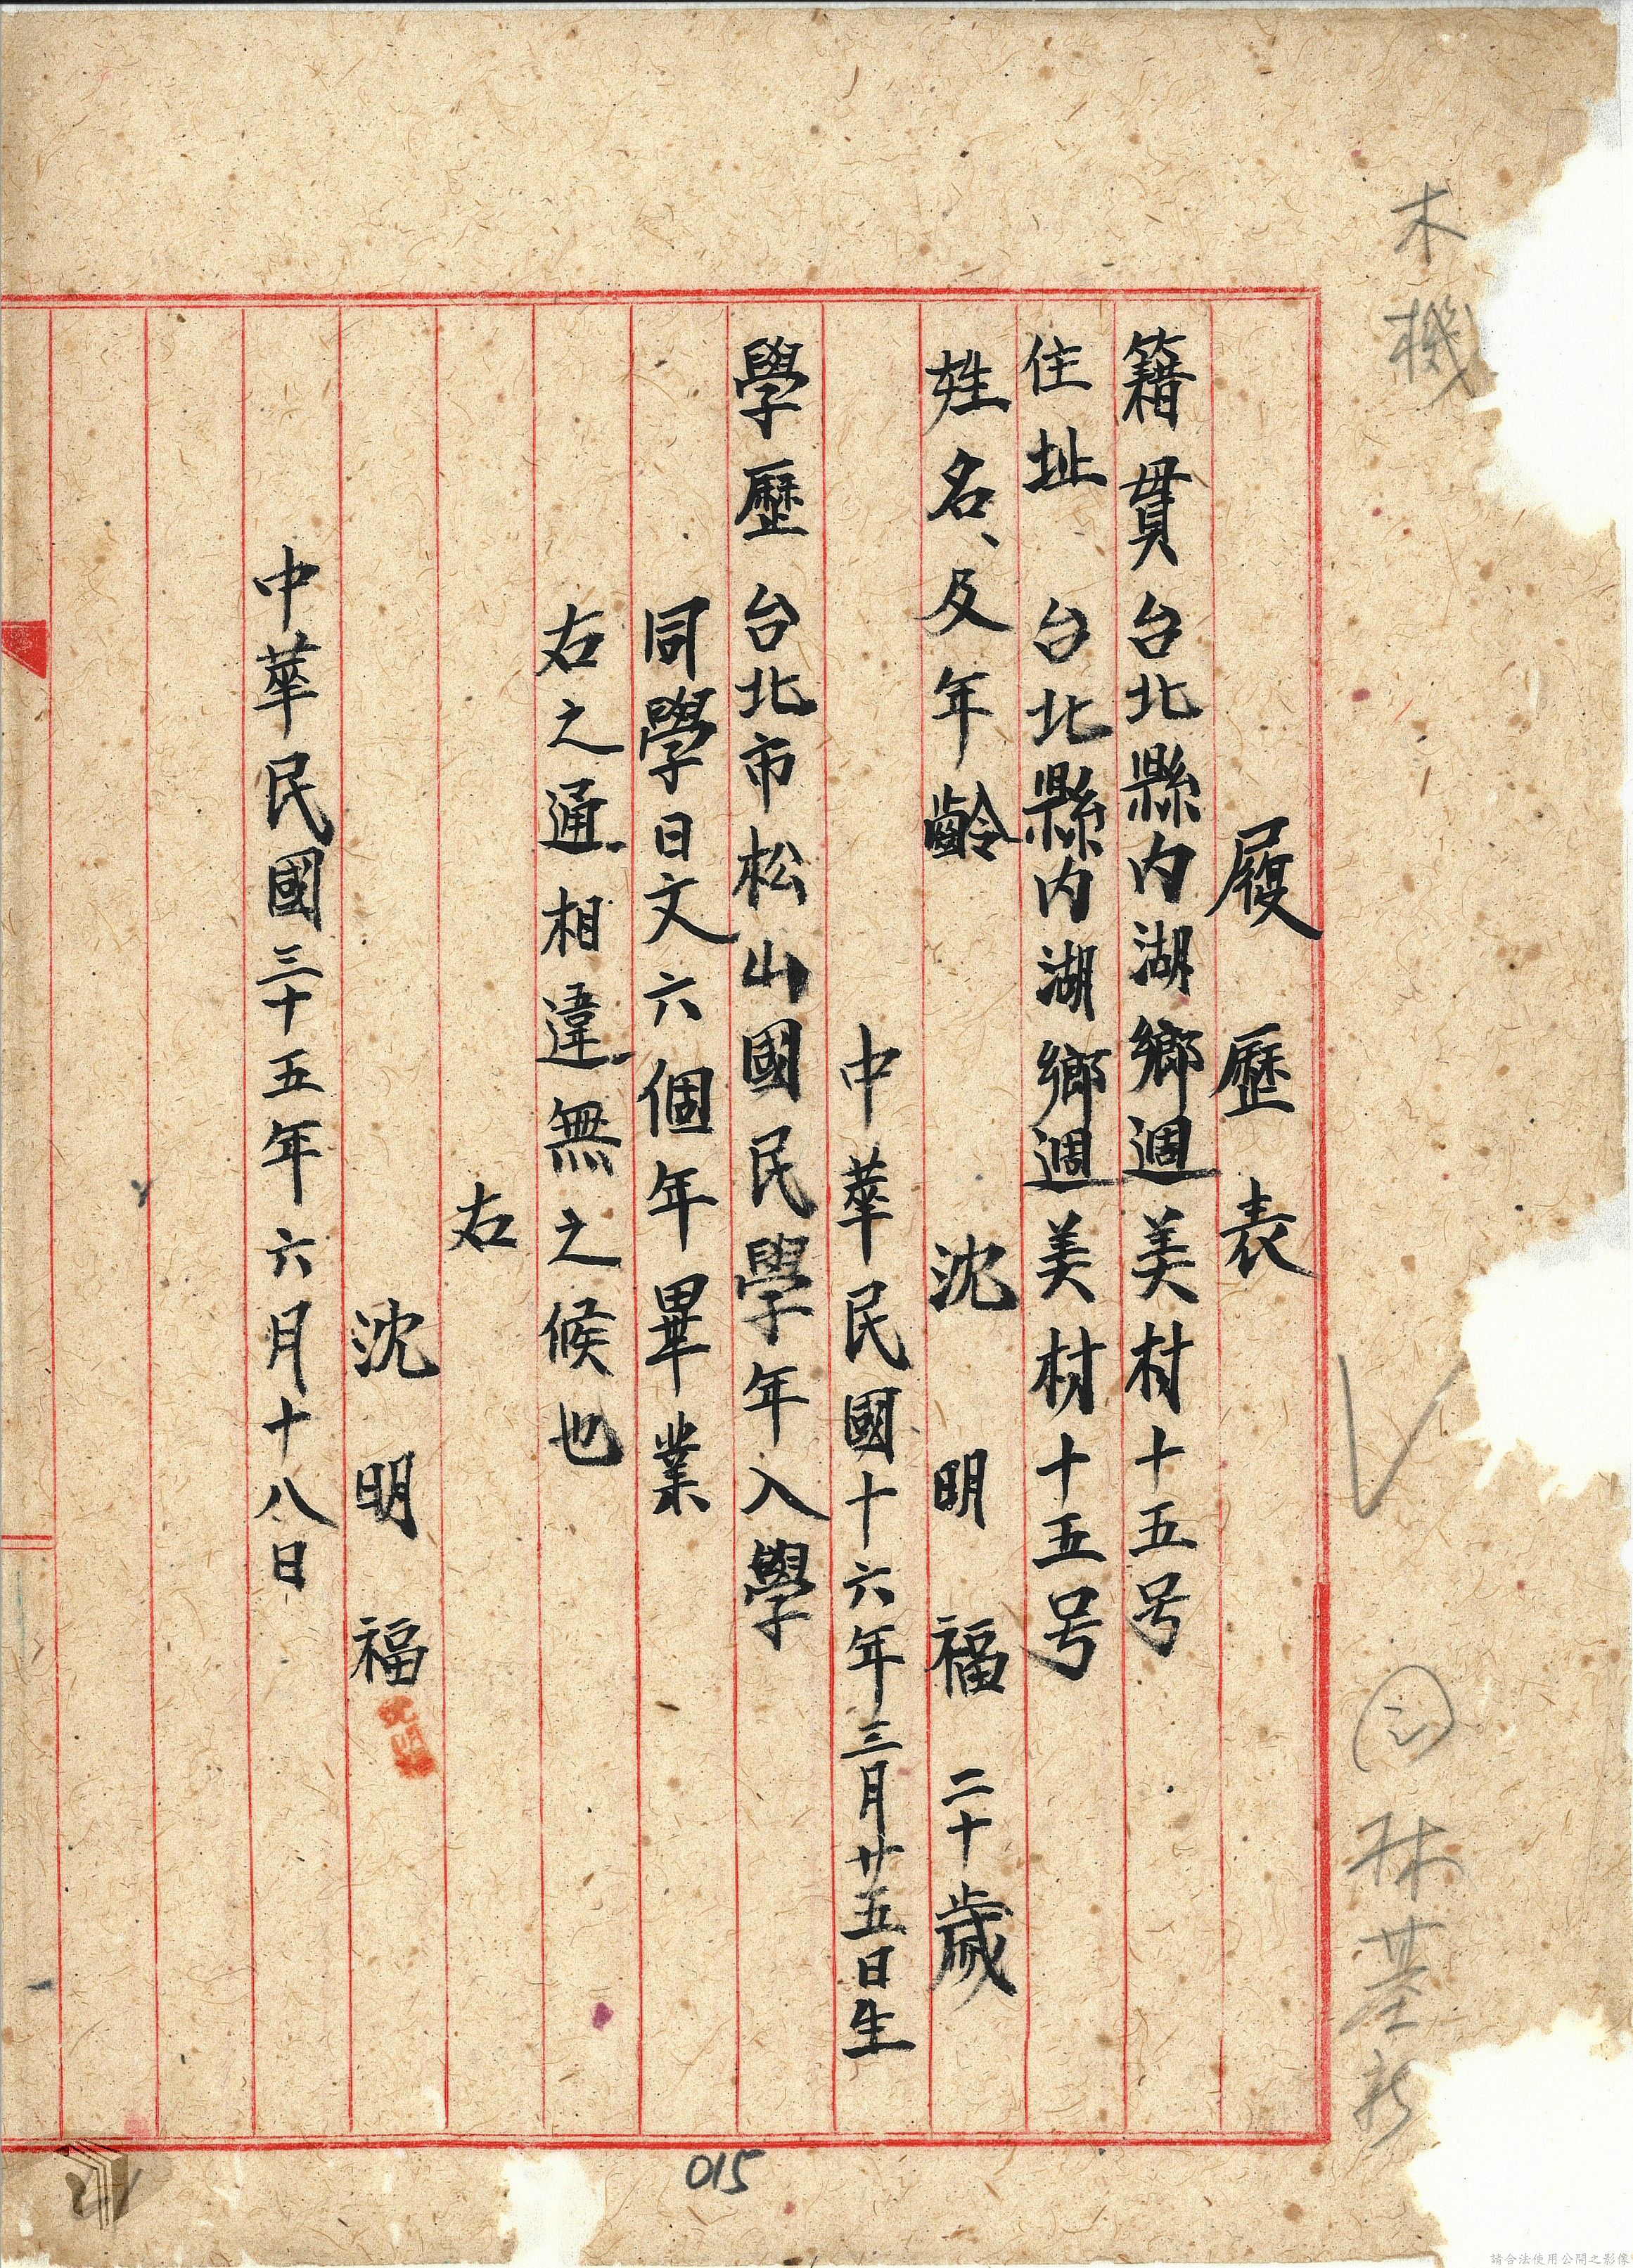 木機
履歷表
籍貫台北縣内湖鄉週美村十五号
住址 台北縣内湖鄉週美村十五号
姓名、及年齡 沈明福 二十歲
中華民國十六年三月廿五日生
學歷 台北市松山國民學年入學
同學日文六個年畢業
右之通相違無之候也
右
沈明福
沈明福
中華民國三十五年六月十八日
林基新
015
21
請合法使用公開之影像